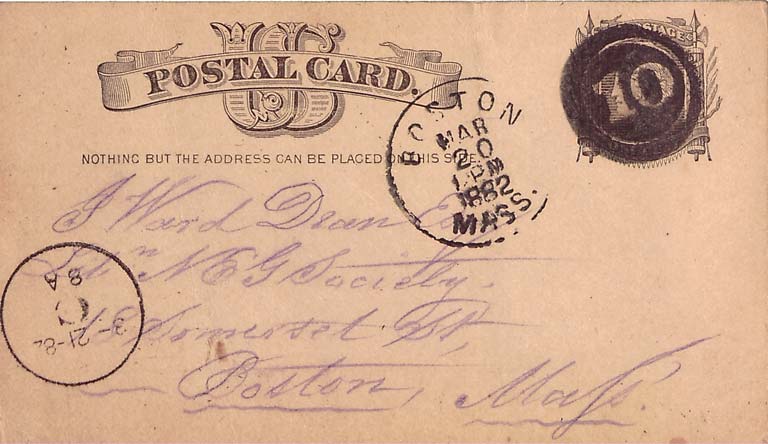 US
POSTAL CARD.
NOTHING BUT THE ADDRESS CAN BE PLACED ON THIS SIDE
POSTAGE
10
BOSTON
MAR
20
1 PM
1882
MASS.
J Ward Dean Esq
N E G Society.
18 Somerset St,
Boston, Mass.
3-21-82
8 A